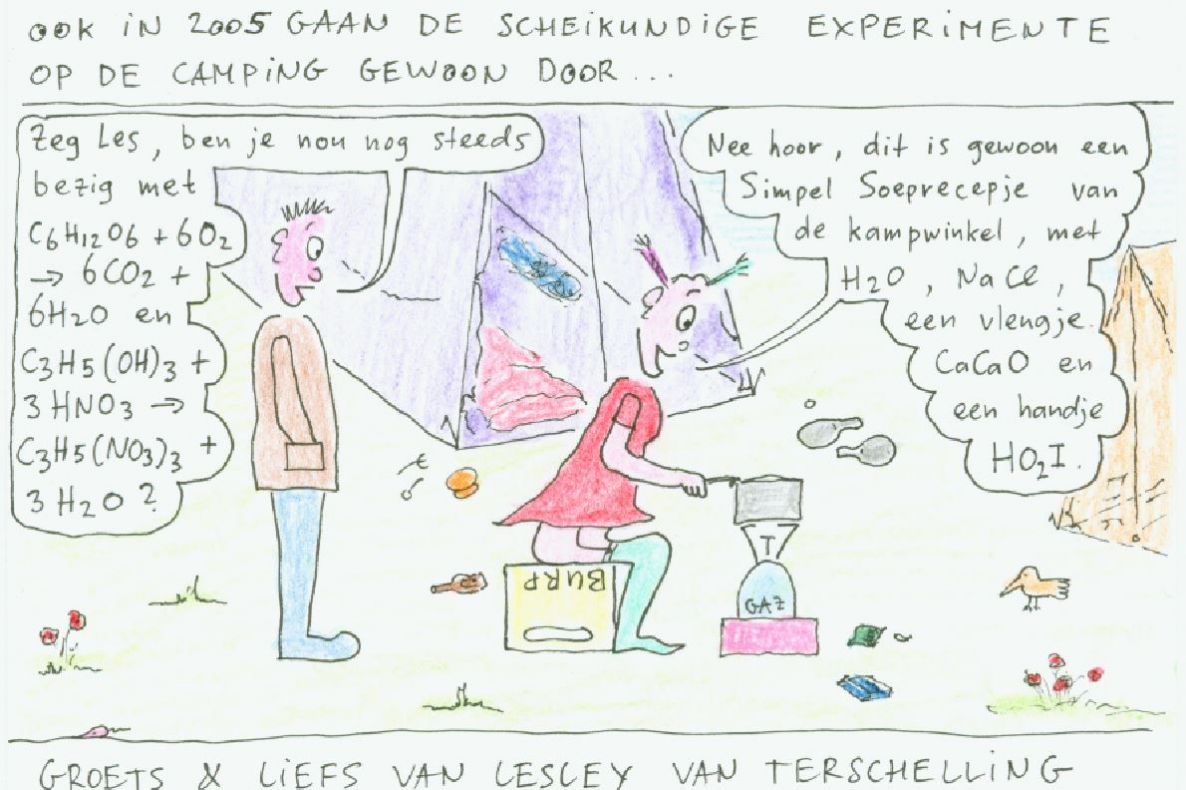 OOK IN 2005 GAAN DE SCHEIKUNDIGE EXPERIMENTE
OP DE CAMPING GEWOON DOOR...
Zeg Les, ben je nou nog steeds
bezig met
C6H12O6 + 6O2
→ 6CO2 +
6H2O en
C3H5(OH)3 +
3HNO3 →
C3H5(NO3)3 +
3H2O?
Nee hoor, dit is gewoon een
Simpel Soeprecepje van
de kampwinkel, met
H2O, NaCl,
een vlengje
CaCaO en
een handje
HO2I.
BURP
T
GAZ
GROETS & LIEFS VAN LESLEY VAN TERSCHELLING